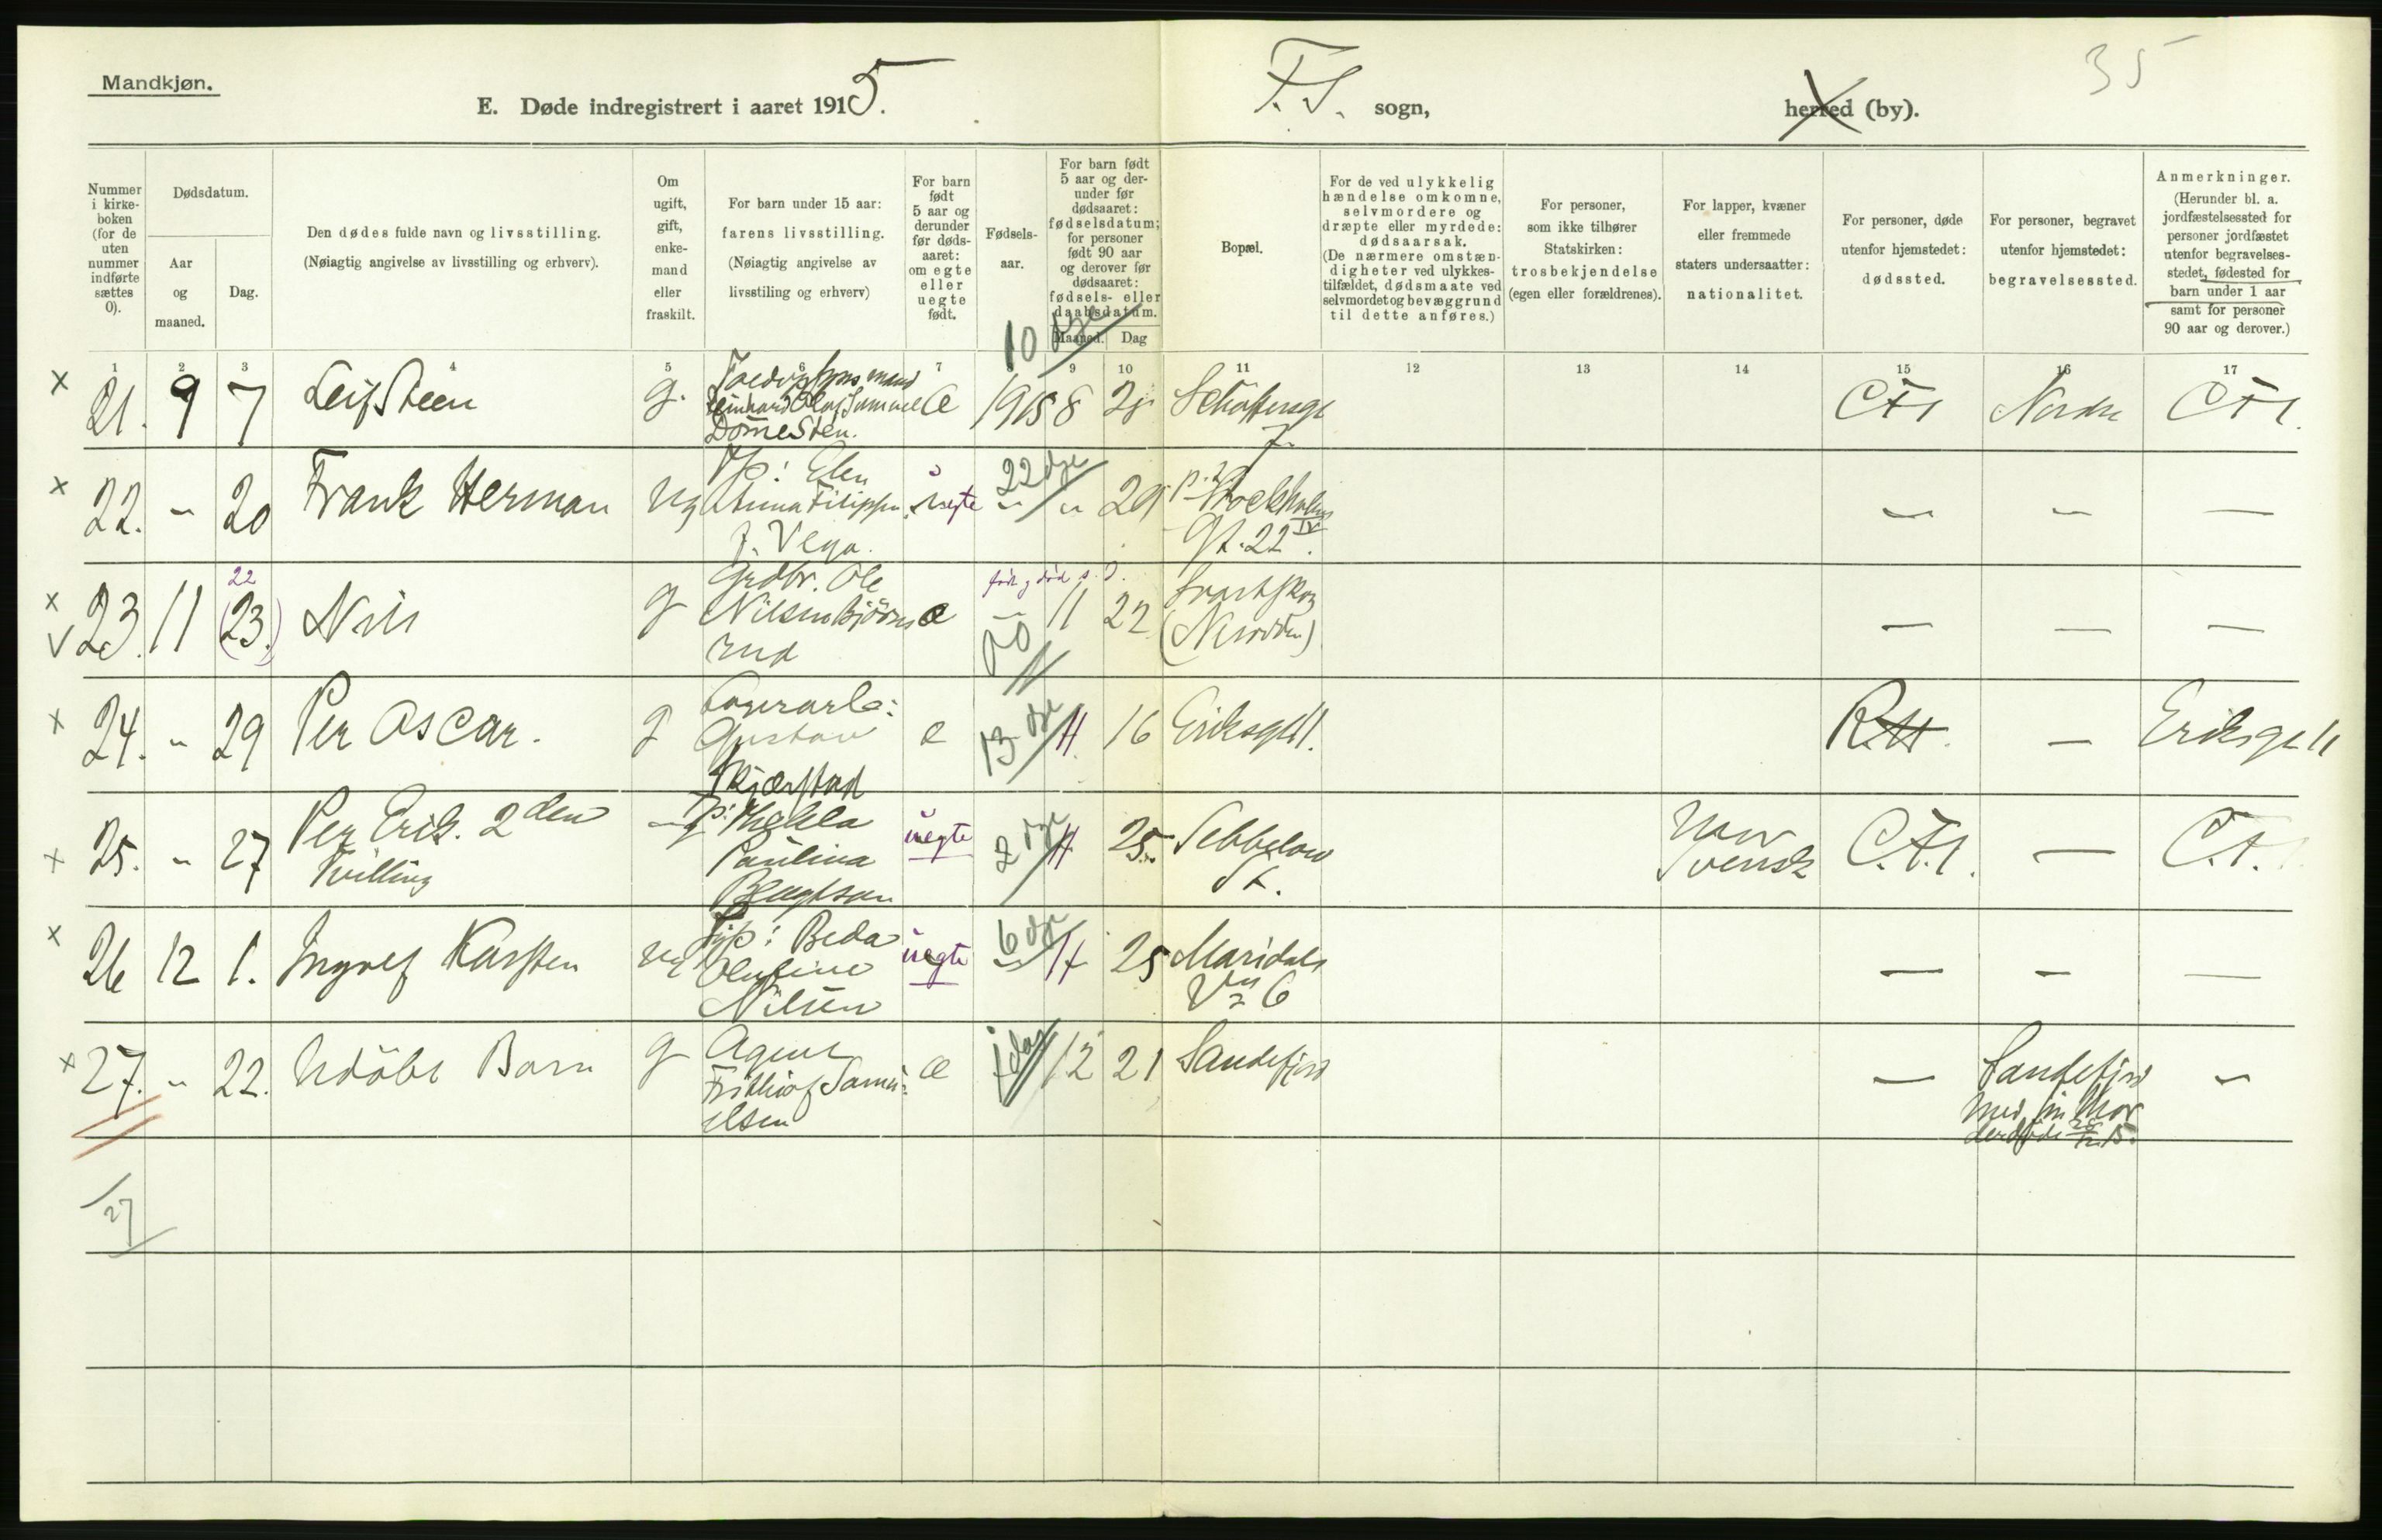 Mandkjøn.
E. Døde indregistrert i aaret 1915.
F. S. sogn,
herred (by).
35
Nummer i kirke-boken (for de uten nummer indførte sættes 0).
Dødsdatum.
Aar og maaned.
Dag.
Den dødes fulde navn og livsstilling.
(Nøiagtig angivelse av livsstilling og erhverv).
Om ugift, gift, enke-mand eller fraskilt.
For barn under 15 aar: farens livsstilling.
(Nøiagtig angivelse av livsstiling og erhverv)
For barn født 5 aar og derunder før døds-aaret: om egte eller uegte født.
Fødsels-aar.
For barn født 5 aar og der-under før dødsaaret: fødselsdatum; for personer født 90 aar og derover før dødsaaret: fødsels- eller daabsdatum.
Maaned.
Dag
Bopæl.
For de ved ulykkelig hændelse omkomne, selvmordere og dræpte eller myrdede: dødsaarsak.
(De nærmere omstæn-digheter ved ulykkes-tilfældet, dødsmaate ved selvmordet og bevæggrund til dette anføres.)
For personer, som ikke tilhører Statskirken: trosbekjendelse (egen eller forældrenes).
For lapper, kvæner eller fremmede staters undersaatter: nationalitet.
For personer, døde utenfor hjemstedet: dødssted.
For personer, begravet utenfor hjemstedet: begravelsessted.
Anmerkninger.
(Herunder bl. a. jordfæstelsessted for personer jordfæstet utenfor begravelses-stedet, fødested for barn under 1 aar samt for personer 90 aar og derover.)
1 2 3 4 5 6 7 8 9 10 11 12 13 14 15 16 17
x 21. 9 7 Leif Steen g. e 10 dge 1915 8 28 7 Nordre
x 22. " 20 Frank Herman ug Anna uegte 22 dge " " 29 gt. 22 IV. — — —
f. Vega.
x v 23. 11 22 (23.) Nils g Grdbr. Ole Nilsen e født og død s. D. " 11 22 (Nesodden) — — —
x 24. " 29 Per Oscar. g Gustav e 13 dge 11 16 Eriksgt 11. — Eriksgt 11
x 25. " 27 Per Erik. 2den Tvilling ug Paulina uegte 2 dge 11 25 Sebbelow St. Svensk C.F.S. — C.F.
x 26 12 1. Karsten ug Beda Olufine Nilsen uegte 6 dge " 11 25 Maridals Vn 6 — — —
x 27. " 22. Udøbt Barn g Agent Frithiof Samuelsen e 1 dag 12 21 Sandefjord — Sandefjord —
27